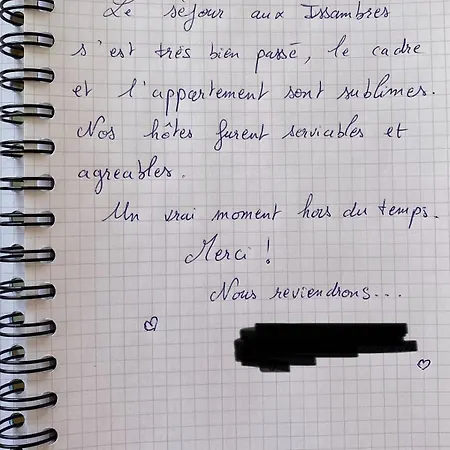 Le séjour aux Issambres
s'est très bien passé, le cadre
et l'appartement sont sublimes.
Nos hôtes furent serviables et
agréables.
Un vrai moment hors du temps.
Merci !
Nous reviendrons...